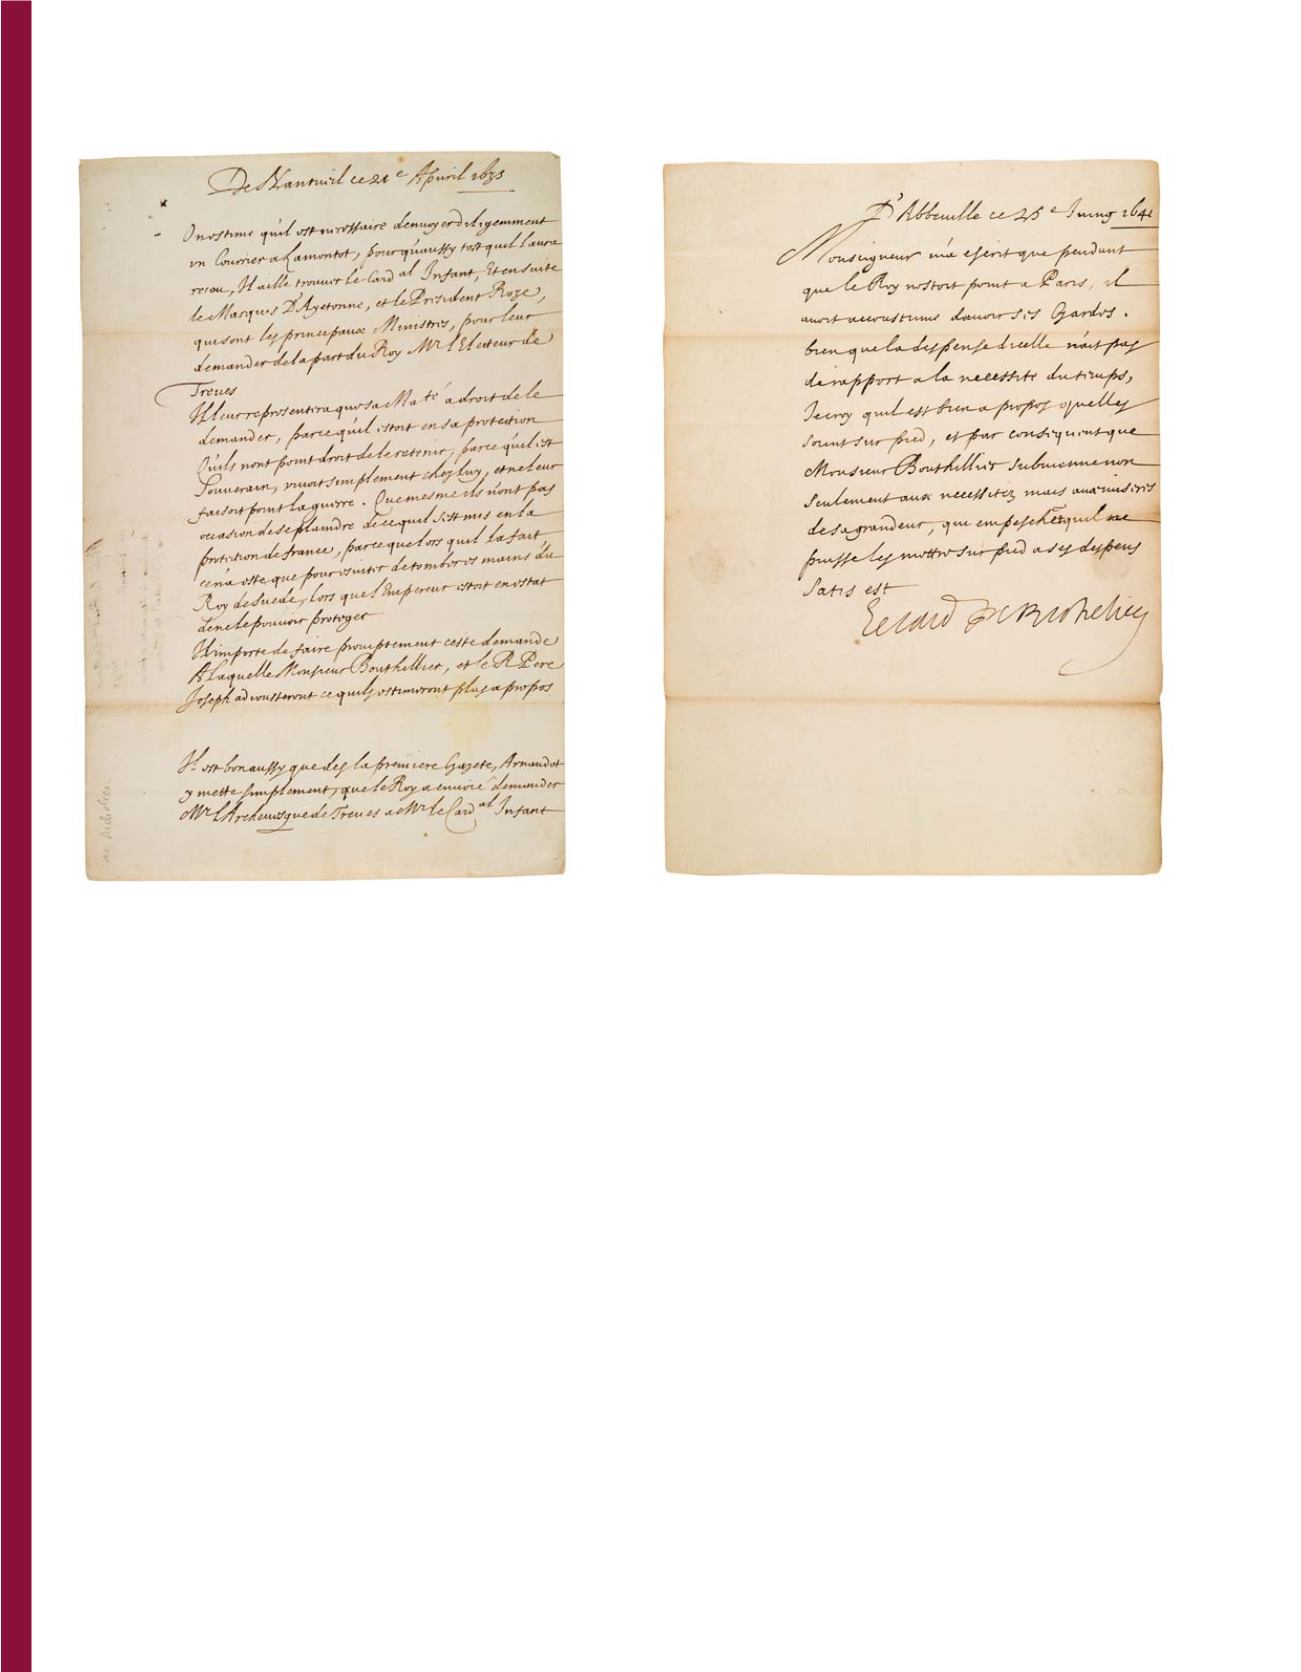 De Nantueil ce 21e Apvril 1635
On estime qu'il est necessaire denvoyer diligemment
un Courrier a Lamontot, pour qu'aussy tost quil l'aura
receu, Il aille trouver le Card al Infant, Et en suite
le Marquis D'Ayetonne, et le President Roze,
qui sont les principaux Ministres, pour leur
demander de la part du Roy Mr l'Electeur de
Treves
Il leur representera que sa Ma té a droit de le
demander, parce qu'il estoit en sa protection
Qu'ils nont point droit de le retenir, parce qu'il est
Souverain, vivoit simplement chez luy, et ne leur
faisoit point la guerre. Que mesme ils n'ont pas
occasion de se plaindre de ce quil s'est mis en la
protection de france, parce que lors quil la fait,
ce n'a esté que pour esviter de tomber es mains du
Roy de Suede, lors que l'Empereur estoit en estat
de ne le pouvoir proteger
Il importe de faire promptement ceste demande
A laquelle Monsieur Bouthillier, et le R. Pere
Joseph adjousteront ce quils estimeront plus a propos
Il est bon aussy que des la premiere Gazete,
y mette simplement, que le Roy a envoié demander
Mr l'Archevesque de Treves a Mr le Card al Infant
D'Abbeville ce 25 e Juing 1641
Monseigneur m'a escrit que pendant
que le Roy n'estoit point a Paris, il
avoit accoustumé davoir ses Gardes.
bien que la despense dicelle n'ait pas
de rapport a la necessité du temps,
Je croy quil est bien a propos quelles
soient sur pied, et par consequent que
Monsieur Bouthillier subvienne non
seulement aux necessitez mais aux miseres
de sa grandeur, qui empeschent quil ne
puisse les mettre sur pied a ses despens
Satis est
Le Card de Richelieu